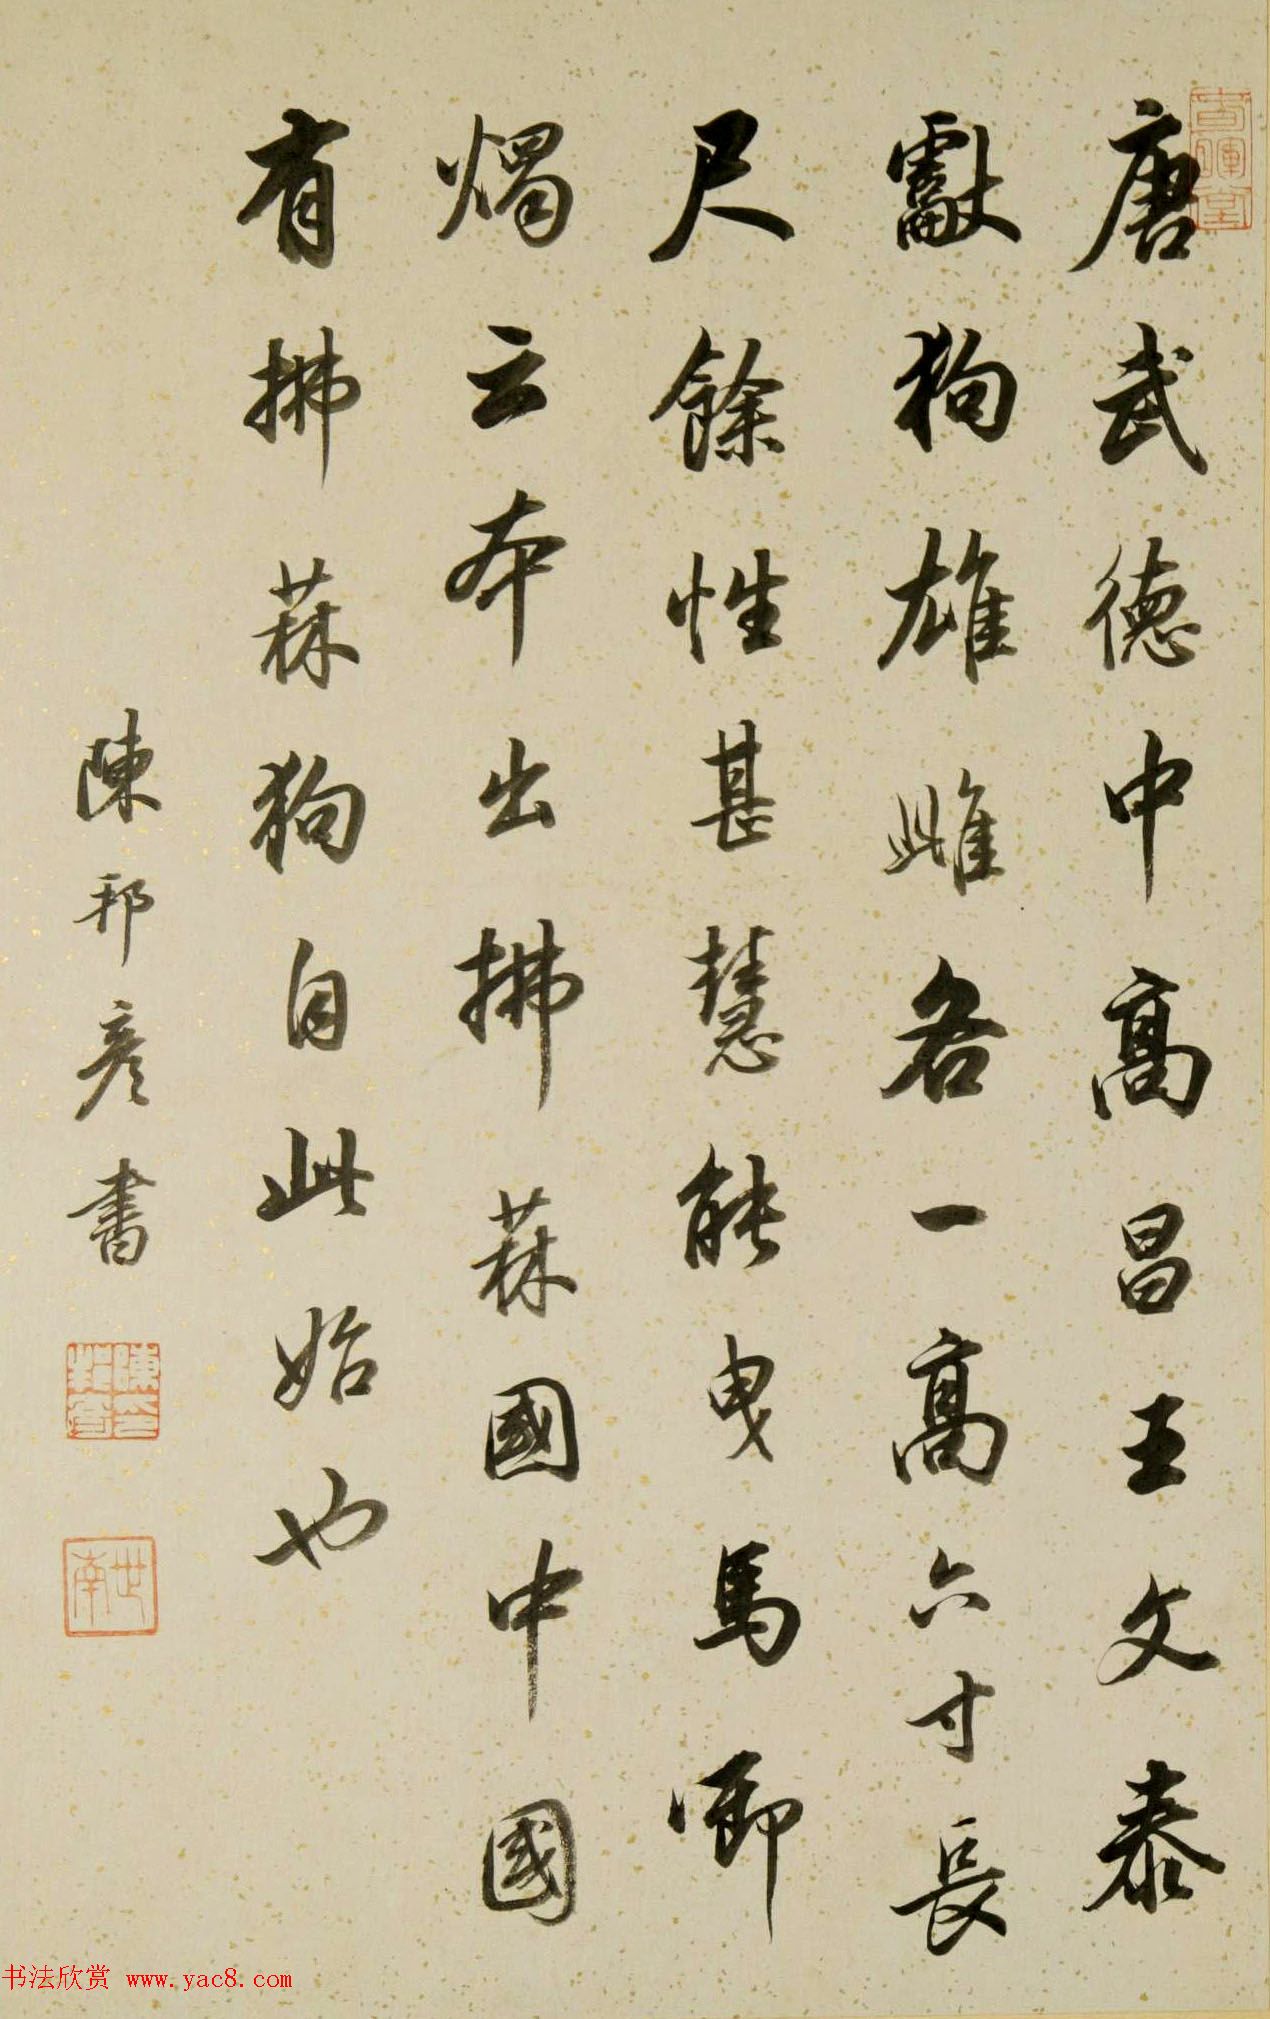 唐武德中高昌王文泰
獻狗雄雌各一高六寸長
尺餘性甚慧能曳馬啣
燭云本出拂菻國中國
有拂菻狗自此始也
陳邦彥書
世南
书法欣赏 www.yac8.com